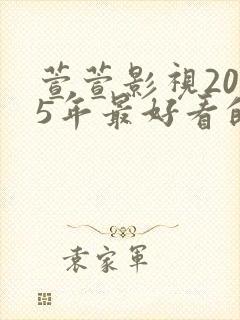 萱萱影視20
5年最好看的
袁家軍